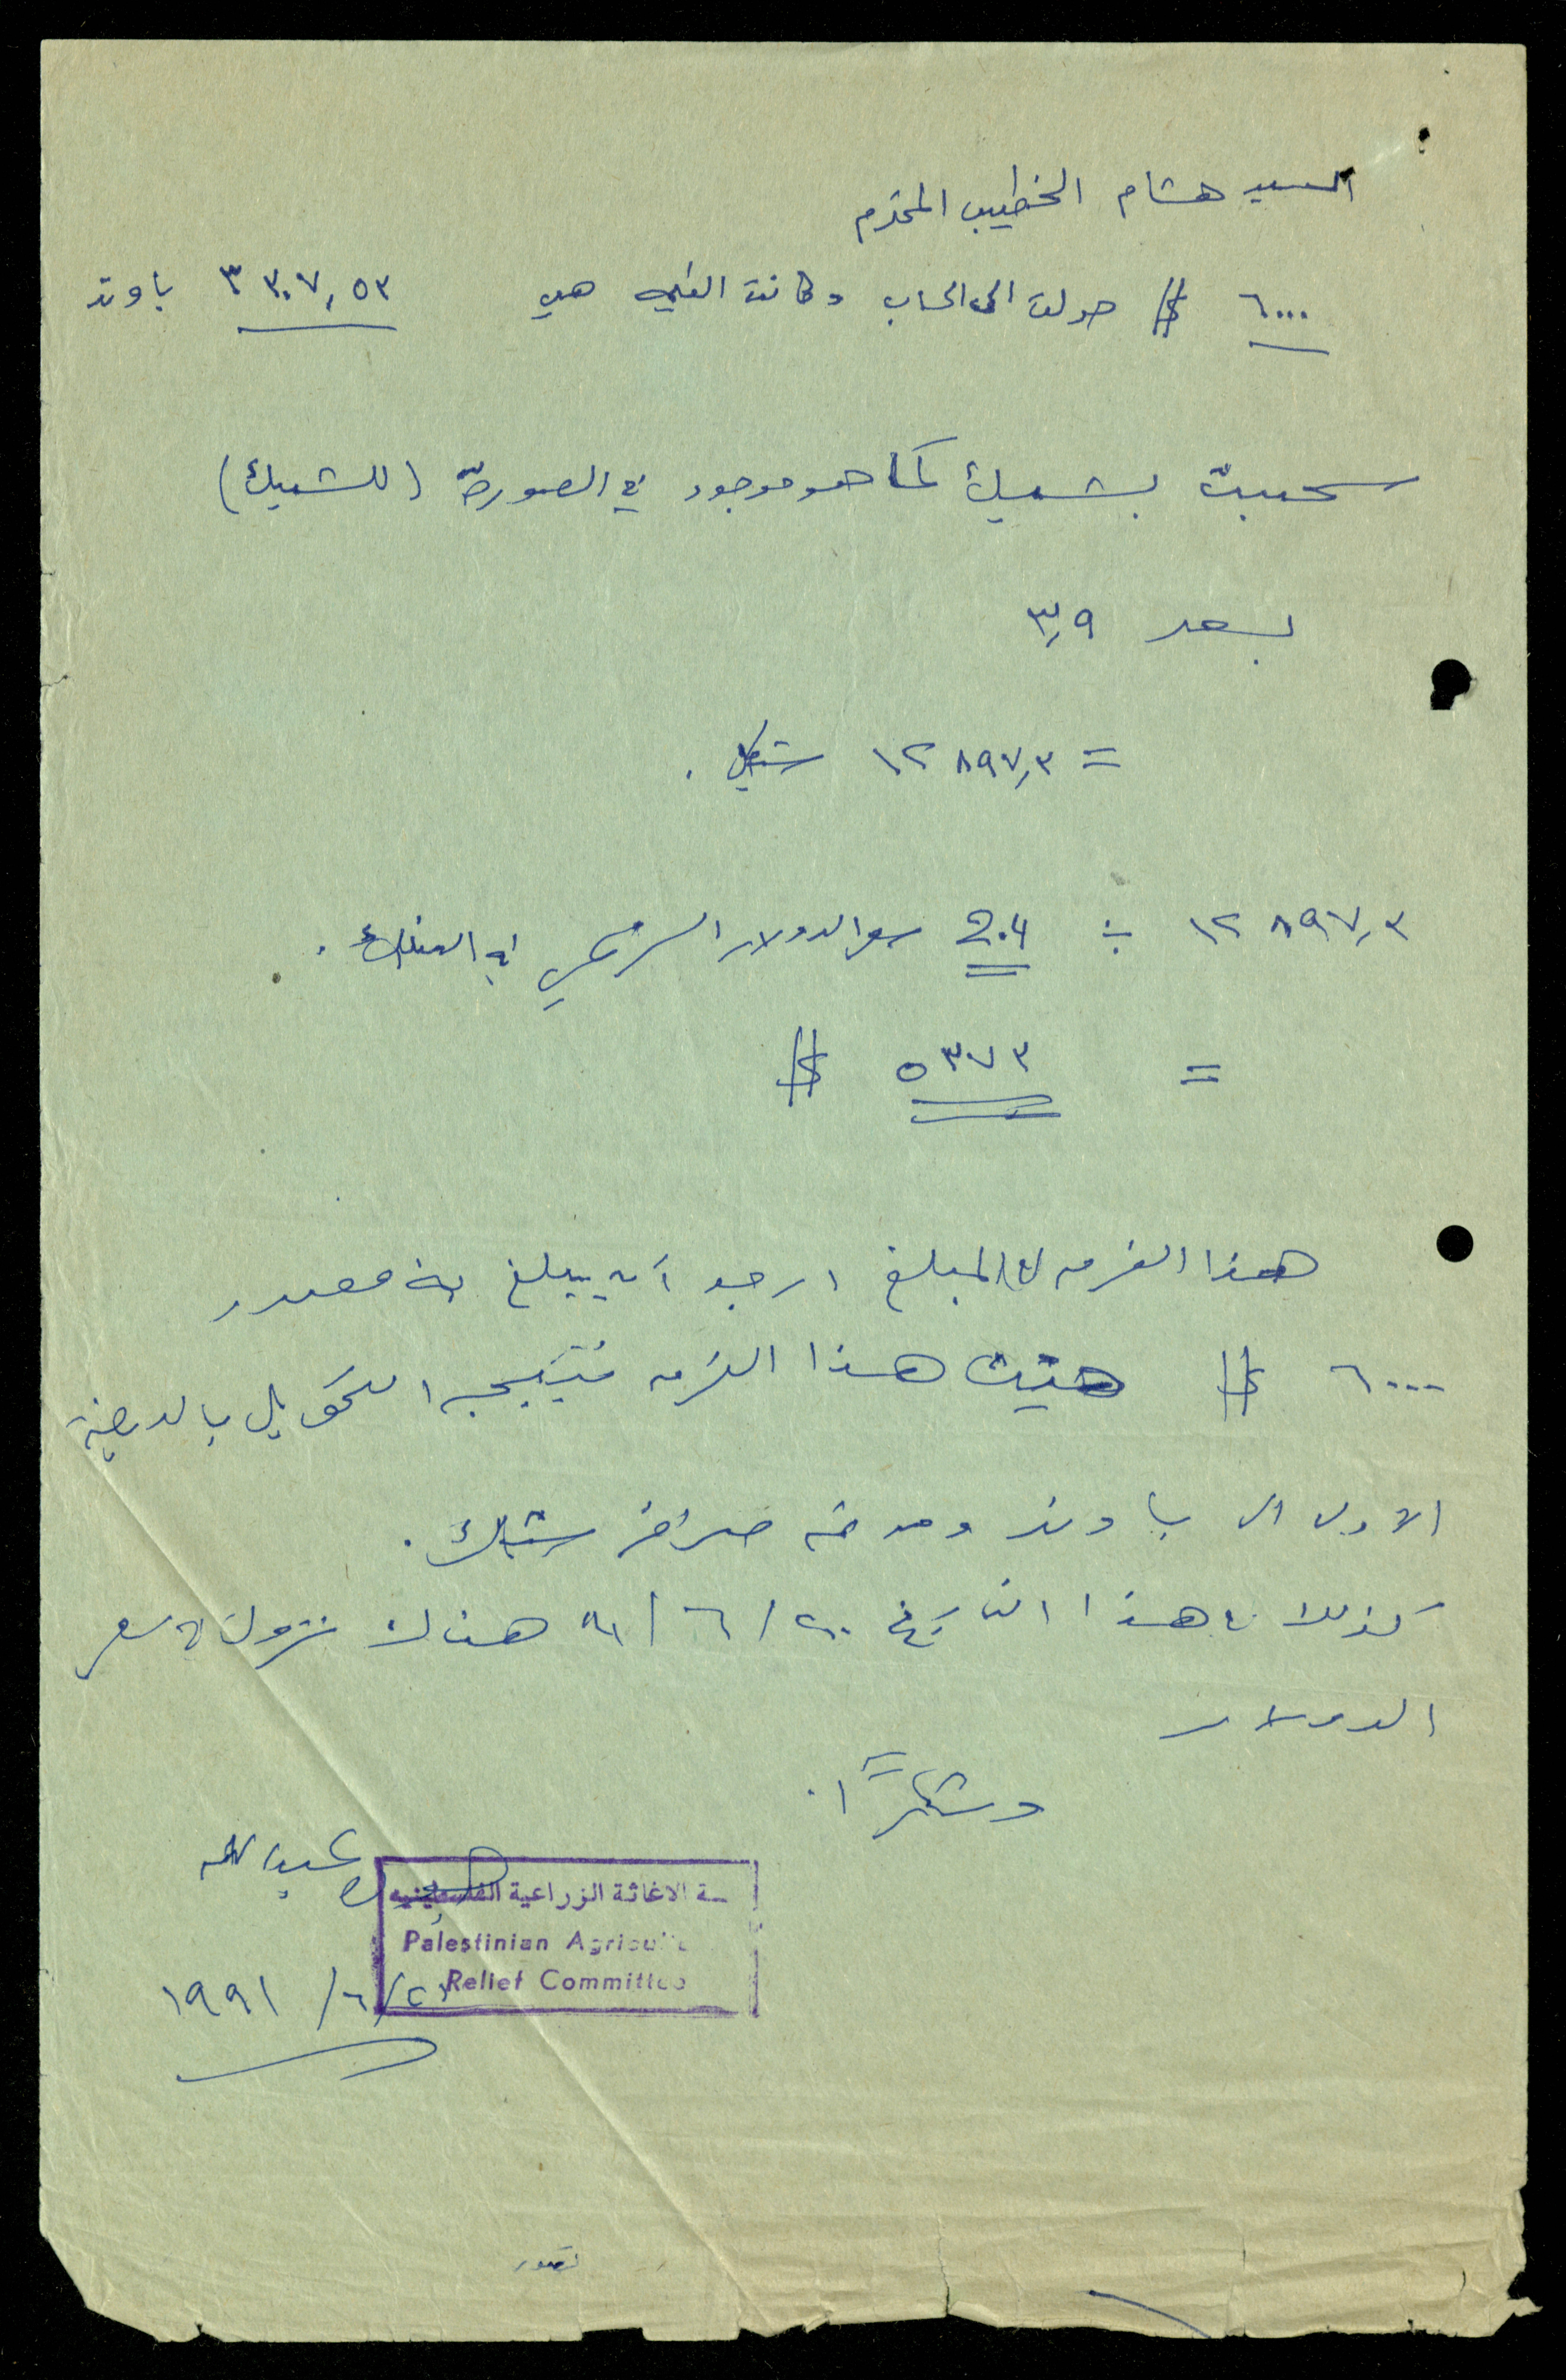 السيد هشام الخطيب المحترم
٦٠٠٠ $ حولت الى الحساب وكانت القيمه هي ٣٣٠٧,٥٣ باوند
سحبت بشيك كما هو موجود في الصورة (للشيك)
بسعر ٣,٩
= ١٢٨٩٧,٣ شيكل.
١٢٨٩٧,٣ ÷ 2.4 سعر الدولار الرسمي في البنك.
= ٥٣٧٣ $
هذا الفرق المبلغ ارجو أن يبلغ به مصدر
٦٠٠٠ $ حيث هذا الفرق نتيجه التحويل بالدرجة
الاولى الى باوند ومن ثم صرافته شيكل.
كذلك في هذا التاريخ ٢٠/٦/٩١ هناك نزول في سعر
الدولار
وشكراً.
عبد الله
ـة الاغاثة الزراعية الفلسطينيه
Palestinian Agricult
Relief Committee
٢١/٦/١٩٩١
تصور